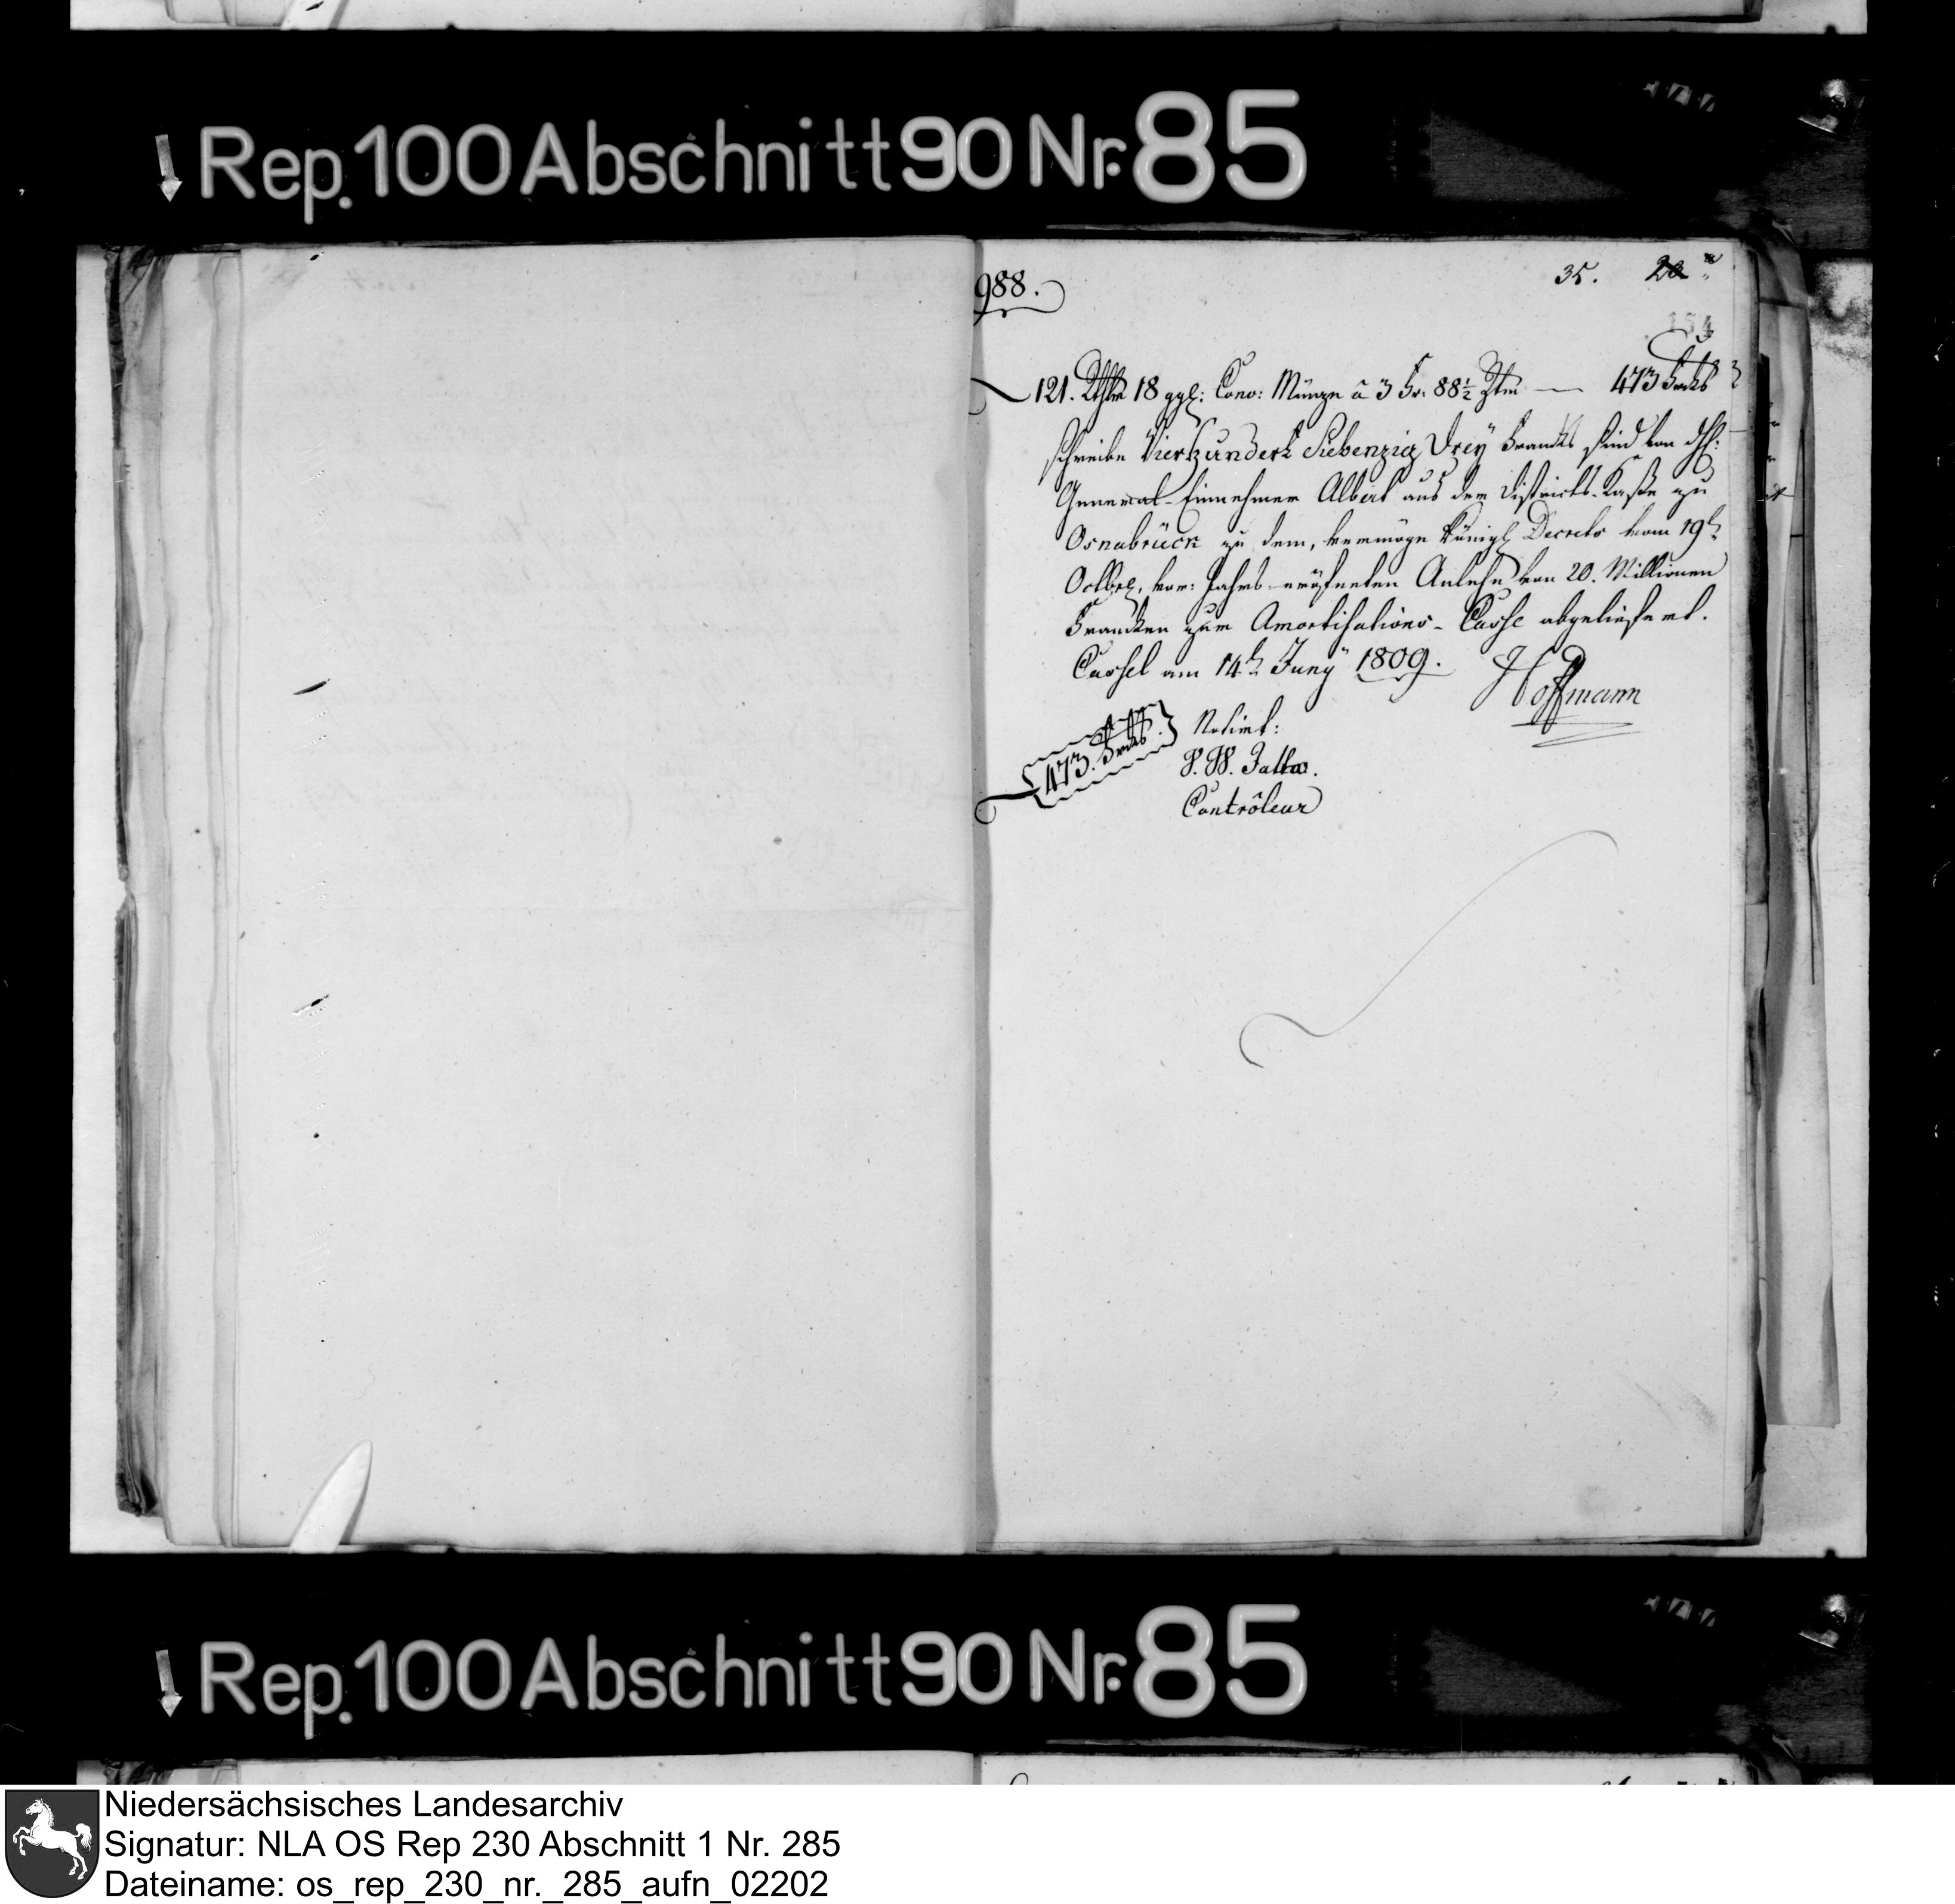 Rep. 100 Abschnitt 90 Nr. 85
988.
35. 20
154
121. Rthlr 18 ggl: Conv: Münze â 3 Fr. 88½ Ztm — 473 Francks
schreibe Vierhundert Siebenzig Drey Francks sind von dH:
General-Einnehmer Albert aus der Districts-Kaße zu
Osnabrück zu dem, vermöge Königl Decrets vom 19t
Octbr, vor: Jahrs eröfneten Anlehn von 20. Millionen
Francken zur Amortisations-Casse abgeliefert.
Cassel am 14t Juny 1809. Hoffmann
473. Francks Notirt:
Contrôleur
Rep. 100 Abschnitt 90 Nr. 85
Niedersächsisches Landesarchiv
Signatur: NLA OS Rep 230 Abschnitt 1 Nr. 285
Dateiname: os_rep_230_nr._285_aufn_02202